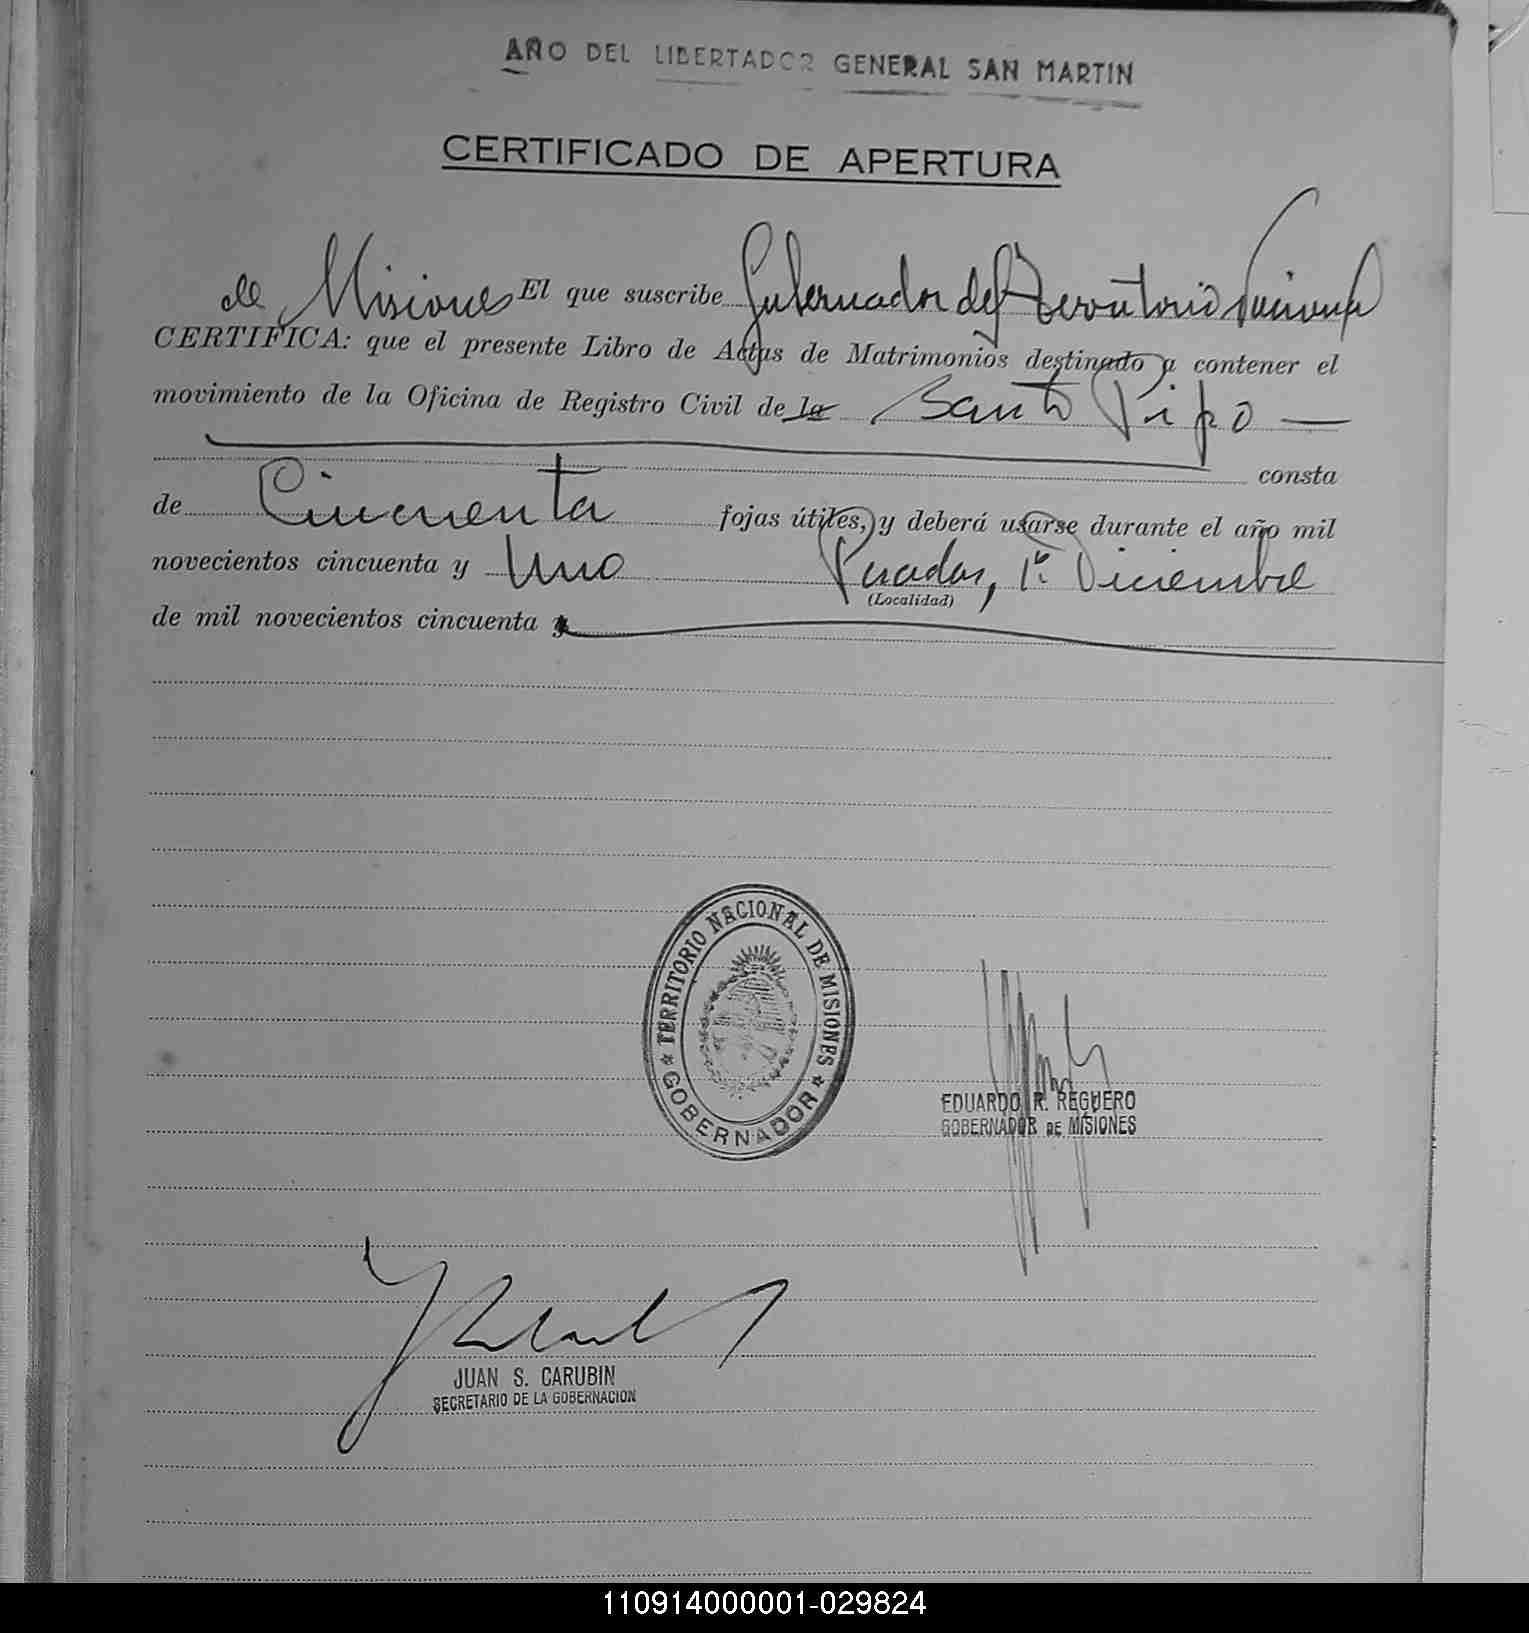 AÑO DEL LIBERTADOR GENERAL SAN MARTIN
CERTIFICADO DE APERTURA
de Misiones El que suscribe Gobernador del Territorio Nacional
CERTIFICA: que el presente Libro de Actas de Matrimonios destinado a contener el
movimiento de la Oficina de Registro Civil de la Santo Pipo
consta
de Cincuenta fojas útiles, y deberá usarse durante el año mil
novecientos cincuenta y Uno Posadas, 1º. Diciembre
(Localidad)
de mil novecientos cincuenta y
TERRITORIO NACIONAL DE MISIONES
GOBERNADOR
EDUARDO R. REGUERO
GOBERNADOR DE MISIONES
JUAN S. CARUBIN
SECRETARIO DE LA GOBERNACION
110914000001-029824